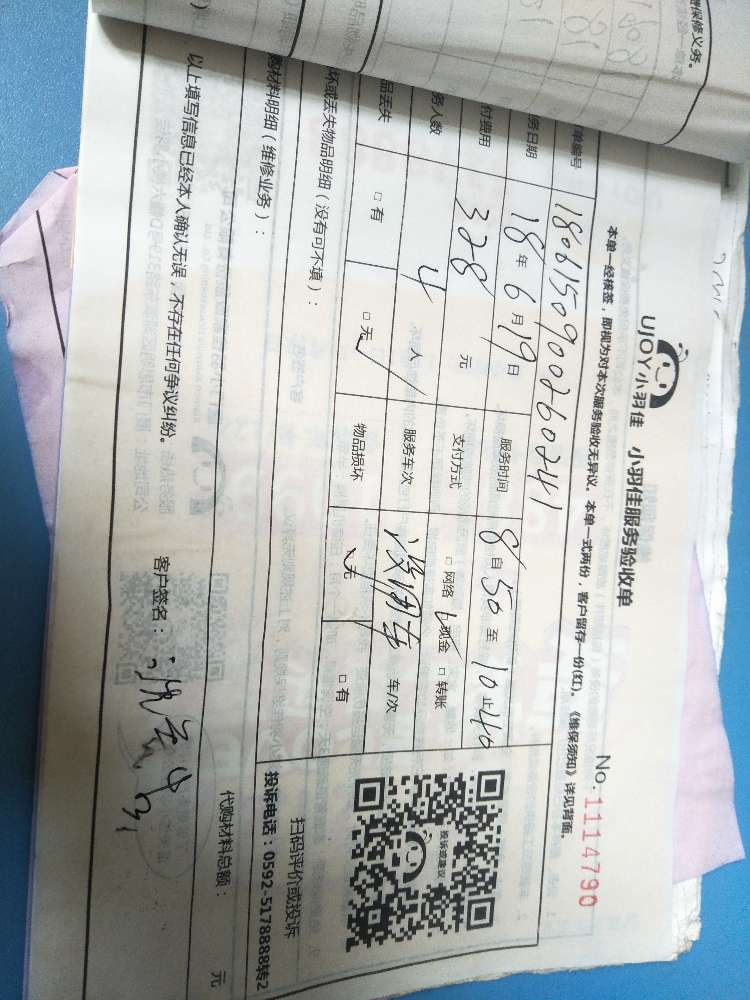 增保修义务。
UJOY小羽佳 小羽佳服务验收单
No:1114790
本单一经核签,即视为对本次服务验收无异议。本单一式两份,客户留存一份(红)。《维保须知》详见背面。
单编号 1806150900260241
务日期 18年6月19日 服务时间 8自50至10止40
付费用 328 元 支付方式 □网络 现金 □转账
务人数 4 人 服务车次 没用车 车/次
品丢失 □有 □无 物品损坏 无 □有
坏或丢失物品明细(没有可不填):
扫码评价或投诉
投诉或建议
投诉电话:0592-5178888转2
购材料明细(维修业务):
代购材料总额: 元
以上填写信息已经本人确认无误,不存在任何争议纠纷。 客户签名: